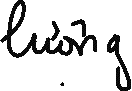 lượng